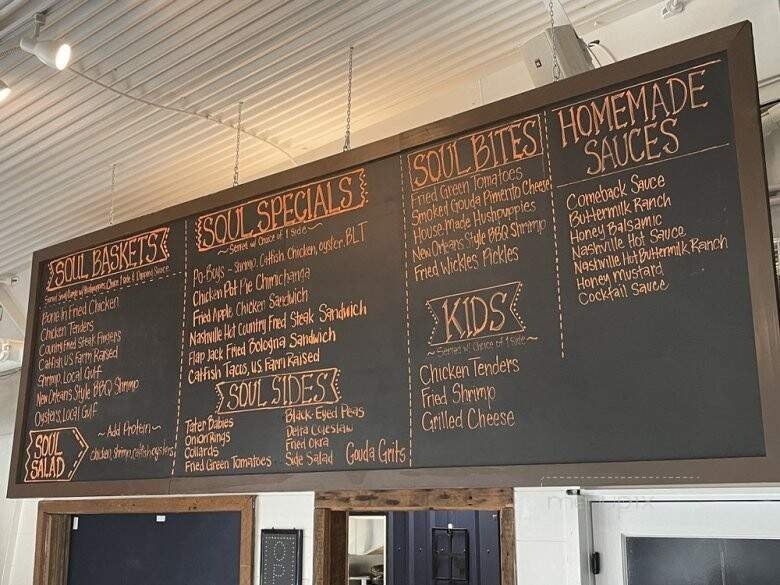 SOUL BASKETS
Bone in Fried Chicken
Chicken Tenders
Country Fried Steak Fingers
Catfish, U.S. Farm Raised
Shrimp, Local Gulf
New Orleans Style BBQ Shrimp
Oysters, Local Gulf
SOUL
SALAD
~ Add Protein ~
chicken, shrimp, catfish, oysters
SOUL SPECIALS
~ Served w/ Choice of 1 side ~
Po-Boys - Shrimp, Catfish, Chicken, oyster, BLT
Chicken Pot Pie Chimichanga
Fried Apple Chicken Sandwich
Nashville Hot Country Fried Steak Sandwich
Flap Jack Fried Bologna Sandwich
Catfish Tacos, U.S. Farm Raised
SOUL SIDES
Tater Babies
Onion Rings
Collards
Fried Green Tomatoes
Black-Eyed Peas
Delta Coleslaw
Fried Okra
Side Salad
Gouda Grits
SOUL BITES
Fried Green Tomatoes
Smoked Gouda Pimento Cheese
House Made Hushpuppies
New Orleans Style BBQ Shrimp
Fried Wickles Pickles
KIDS
~ Served w/ Choice of 1 side ~
Chicken Tenders
Fried Shrimp
Grilled Cheese
HOMEMADE
SAUCES
Comeback Sauce
Buttermilk Ranch
Honey Balsamic
Nashville Hot Sauce
Nashville Hot Buttermilk Ranch
Honey Mustard
Cocktail Sauce